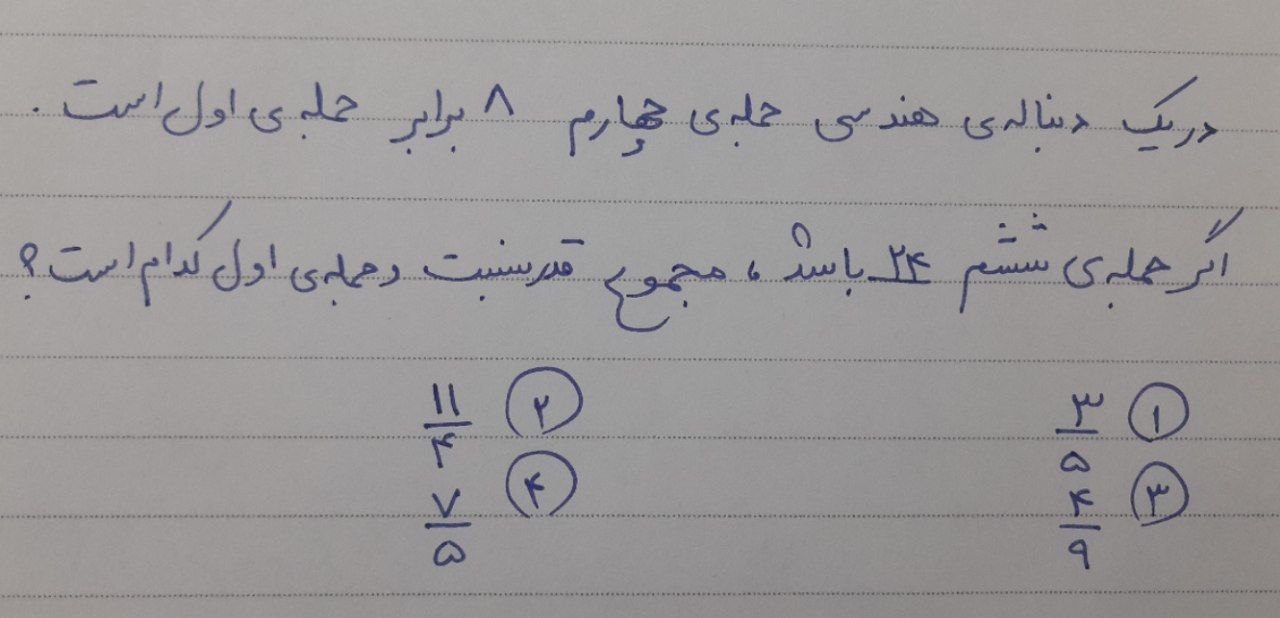 در یک دنباله‌ی هندسی جمله‌ی چهارم ۸ برابر جمله‌ی اول است.
اگر جمله‌ی ششم ۲۴ باشد، مجموع قدرنسبت و جمله‌ی اول کدام است؟
۱ ۳/۵ ۲ ۱۱/۴
۳ ۴/۹ ۴ ۷/۵